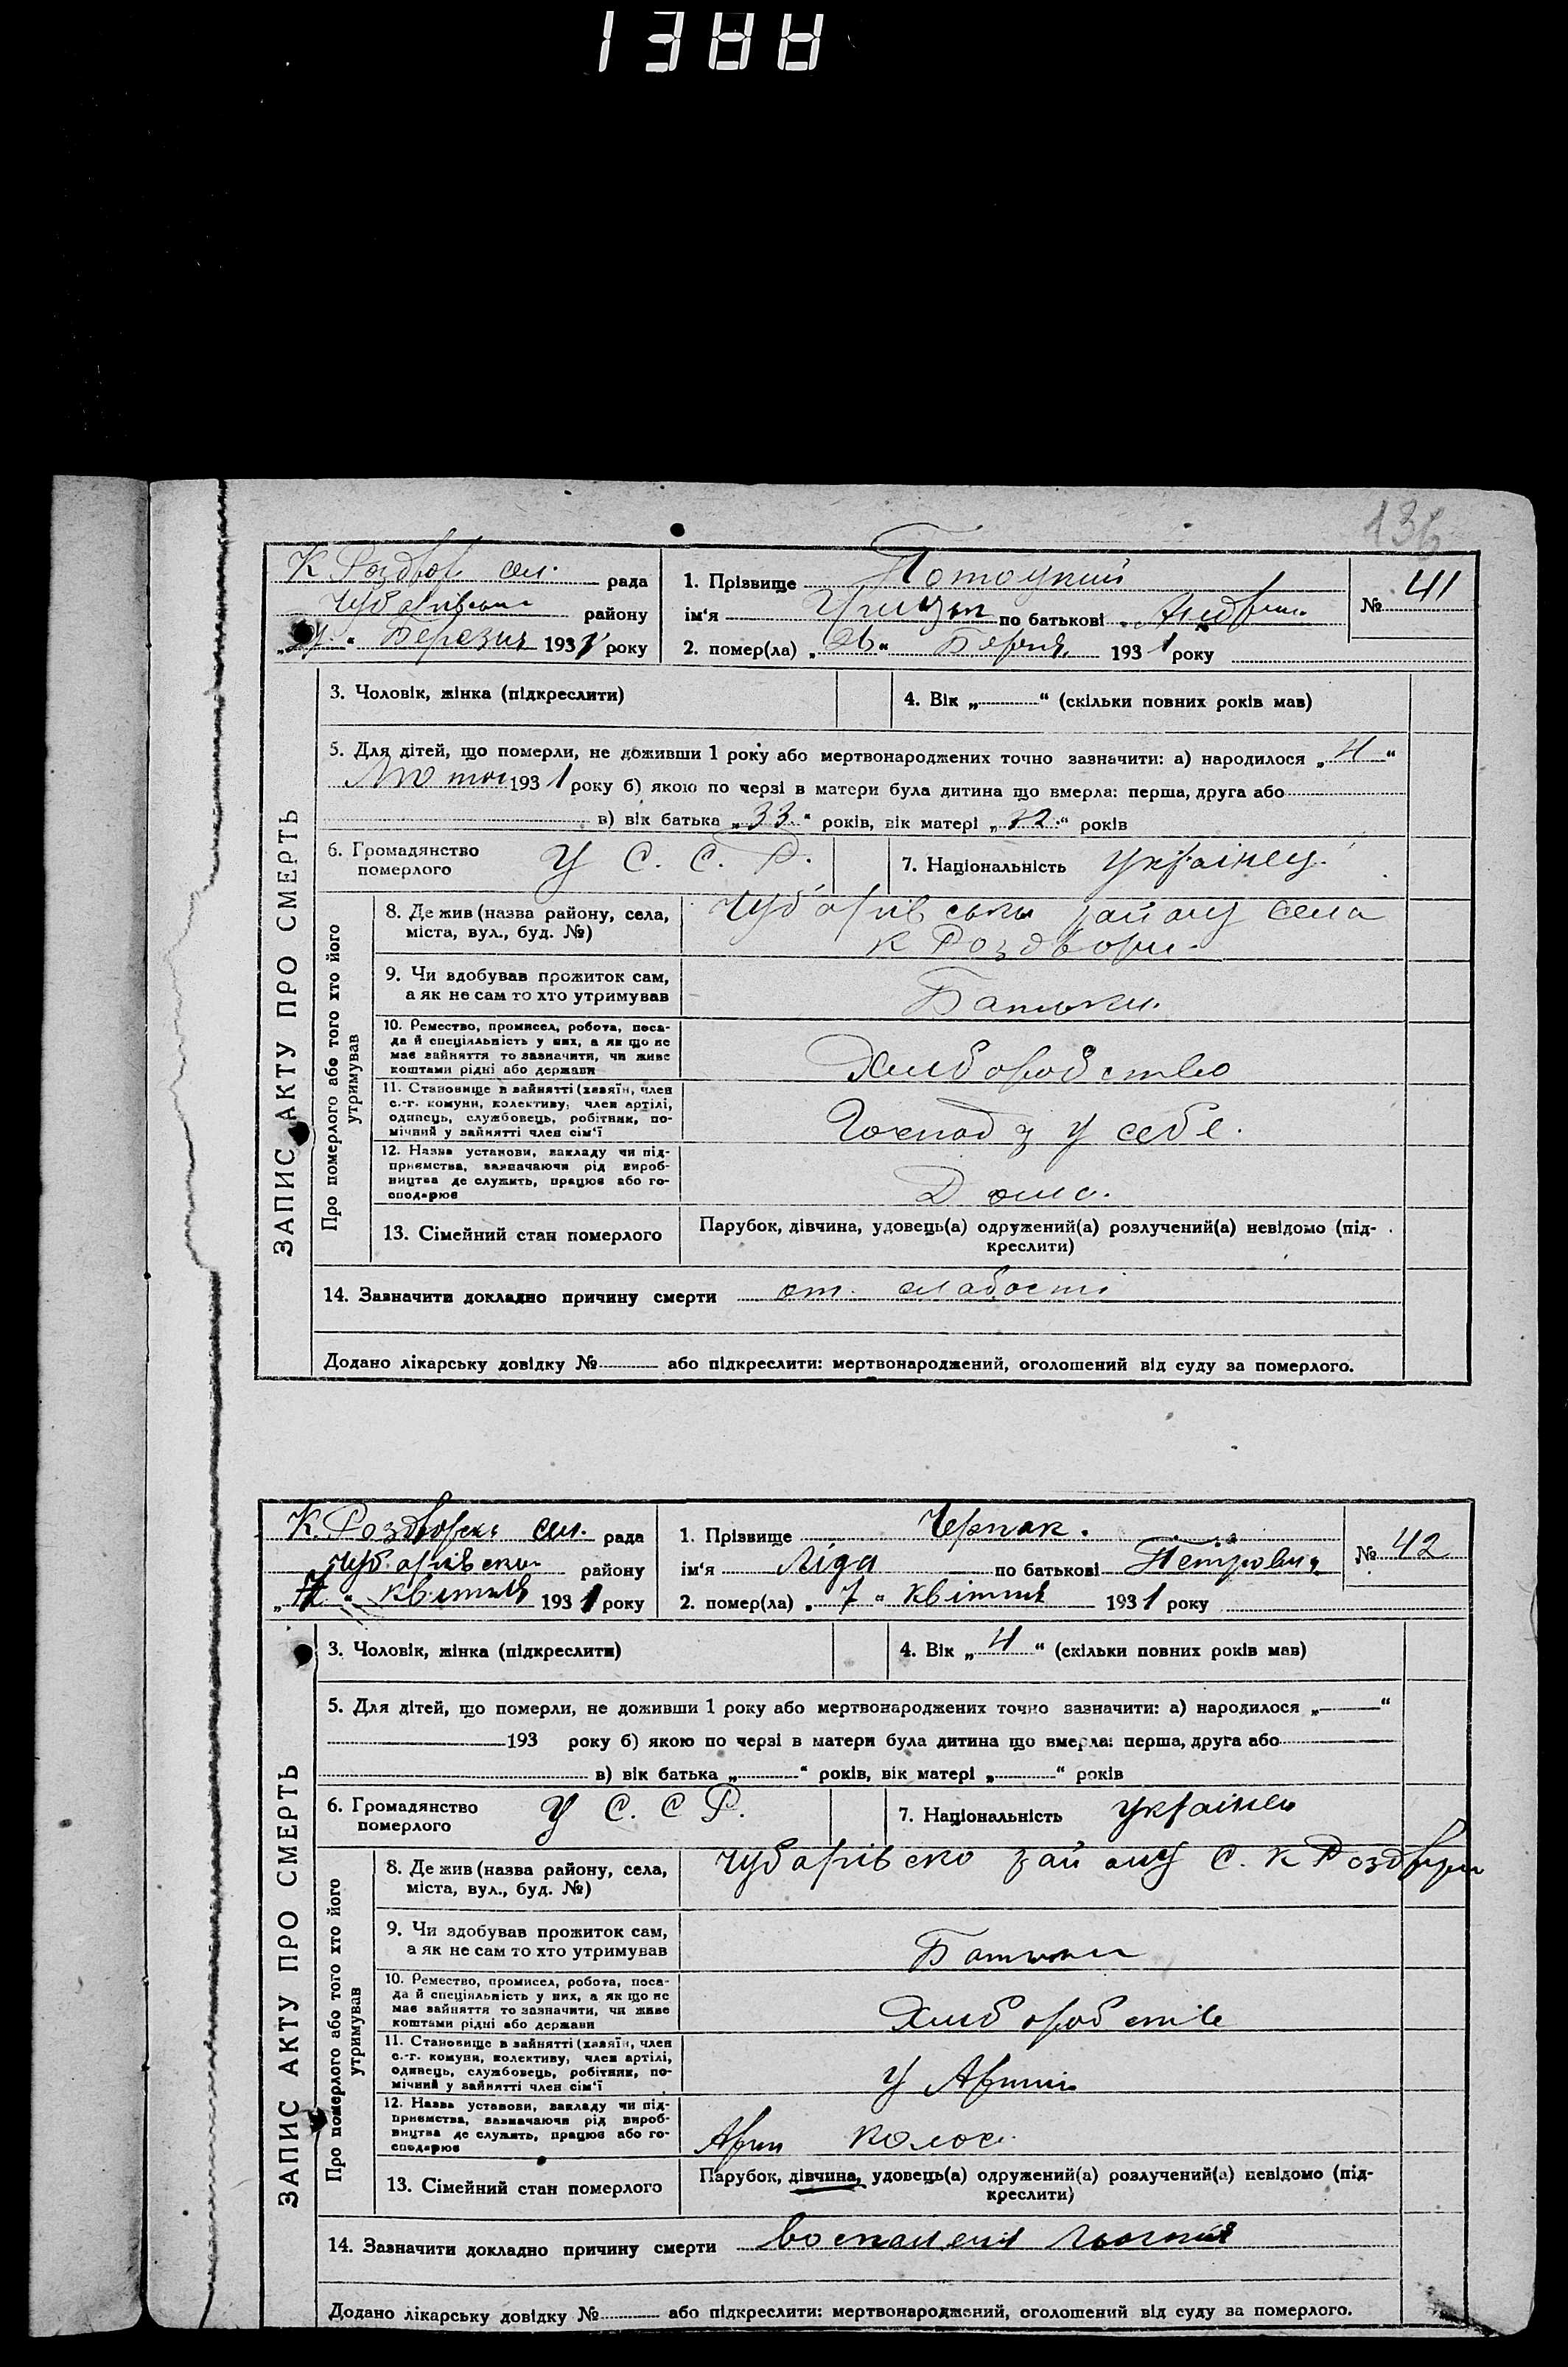 136
К Роздвор сел. рада
Чубарівськ району
" Березня 1931 року
1. Прізвище Потоцкий
ім'я Гриць по батькові Андр
2. помер(ла) „26" Березня 1931 року
№ 41
ЗАПИС АКТУ ПРО СМЕРТЬ
3. Чоловік, жінка (підкреслити)
4. Вік „ " (скільки повних років мав)
5. Для дітей, що померли, не доживши 1 року або мертвонароджених точно зазначити: а) народилося „4"
Лютого 1931 року б) якою по черзі в матери була дитина що вмерла: перша, друга або
в) вік батька „33" років, вік матері „ " років
6. Громадянство
померлого
У С. С. Р.
7. Національність Українец
Про померлого або того хто його
утримував
8. Де жив (назва району, села,
міста, вул., буд. №)
Чубарівськи району села
К Роздвори.
9. Чи здобував прожиток сам,
а як не сам то хто утримував
Батьки.
10. Ремество, промисел, робота, поса-
да й спеціяльність у них, а як що не
має зайняття то зазначити, чи живе
коштами рідні або держави
Хлиборобство
11. Становище в зайнятті (хазяїн, член
с.-г. комуни, колективу, член артілі,
одинець, службовець, робітник, по-
мічний у зайнятті член сім'ї
Господ з у себе.
12. Назва установи, закладу чи під-
приємства, зазначаючи рід вироб-
ництва де служить, працює або го-
сподарює
Дома.
13. Сімейний стан померлого
Парубок, дівчина, удовець(а) одружений(а) розлучений(а) невідомо (під-
креслити)
14. Зазначити докладно причину смерти от слабості
Додано лікарську довідку № або підкреслити: мертвонароджений, оголошений від суду за померлого.
К. Роздворск сел. рада
Чубарівски району
„7" квітня 1931 року
1. Прізвище Черпак.
ім'я Ліда по батькові Петровна
2. помер(ла) „7" квітня 1931 року
№ 42
ЗАПИС АКТУ ПРО СМЕРТЬ
3. Чоловік, жінка (підкреслити)
4. Вік „4" (скільки повних років мав)
5. Для дітей, що померли, не доживши 1 року або мертвонароджених точно зазначити: а) народилося „ "
193 року б) якою по черзі в матери була дитина що вмерла: перша, друга або
в) вік батька „ " років, вік матері „ " років
6. Громадянство
померлого
У С. С Р.
7. Національність Українец
Про померлого або того хто його
утримував
8. Де жив (назва району, села,
міста, вул., буд. №)
Чубарівско району С. К Роздвори
9. Чи здобував прожиток сам,
а як не сам то хто утримував
Батьки
10. Ремество, промисел, робота, поса-
да й спеціяльність у них, а як що не
має зайняття то зазначити, чи живе
коштами рідні або держави
Хлиборобств
11. Становище в зайнятті (хазяїн, член
с.-г. комуни, колективу, член артілі,
одинець, службовець, робітник, по-
мічний у зайнятті член сім'ї
У Артилі
12. Назва установи, закладу чи під-
приємства, зазначаючи рід вироб-
ництва де служить, працює або го-
сподарює
Арти Колос
13. Сімейний стан померлого
Парубок, дівчина, удовець(а) одружений(а) розлучений(а) невідомо (під-
креслити)
14. Зазначити докладно причину смерти воспаления
Додано лікарську довідку № або підкреслити: мертвонароджений, оголошений від суду за померлого.